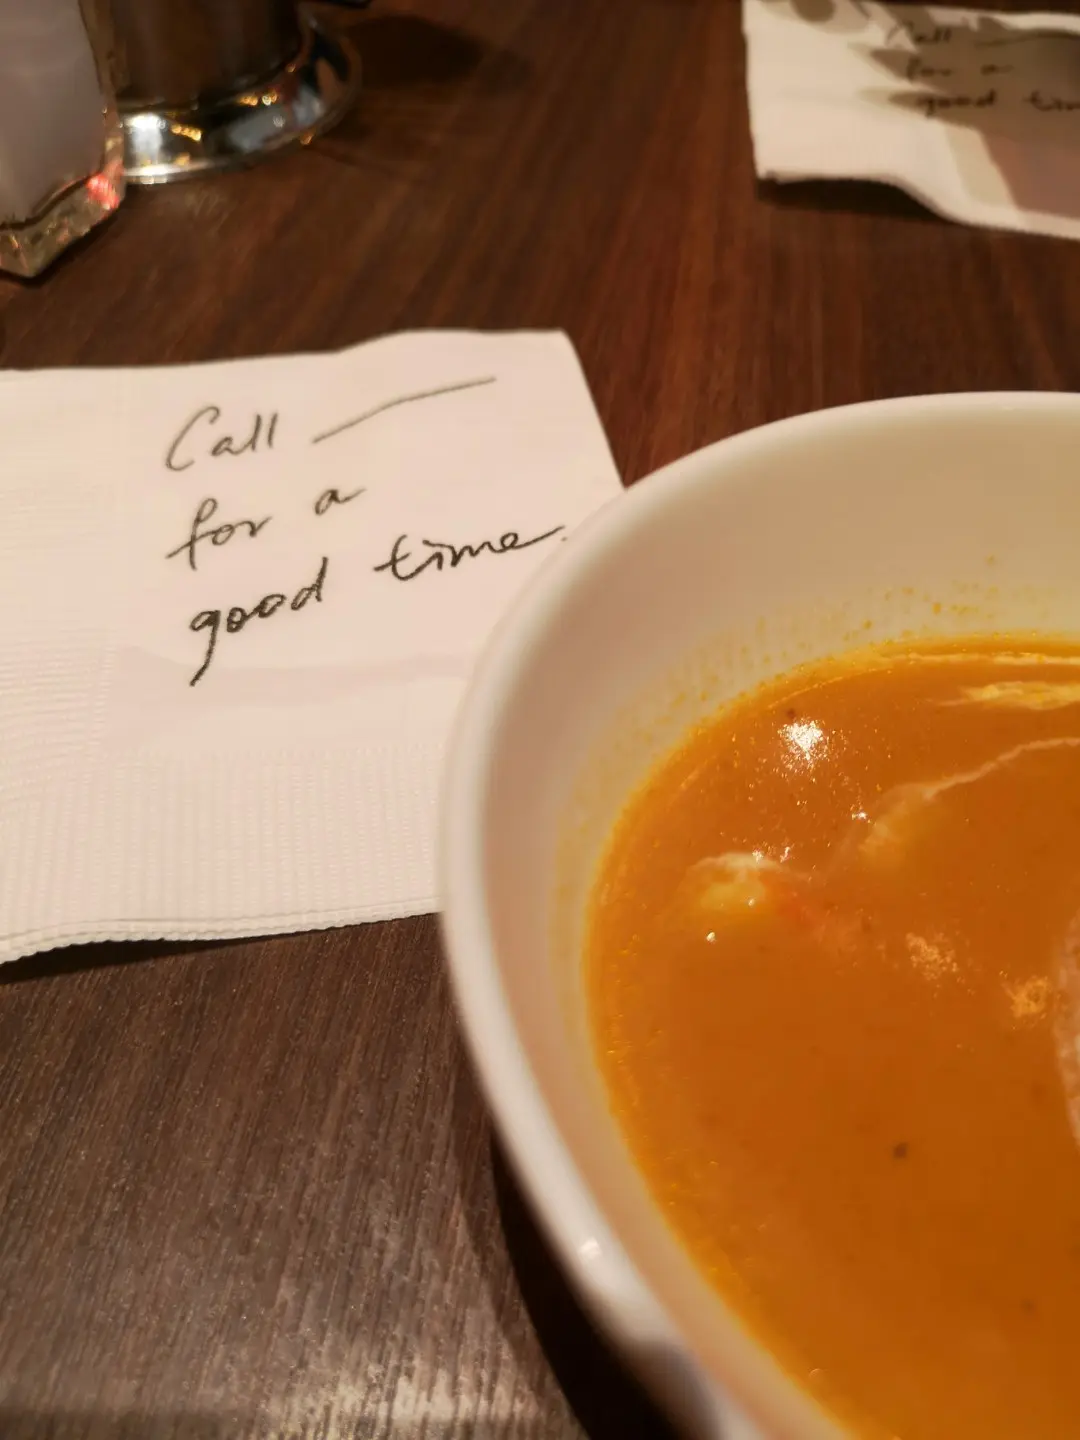 Call ——
for a
good time.
Call ——
for a
good tim